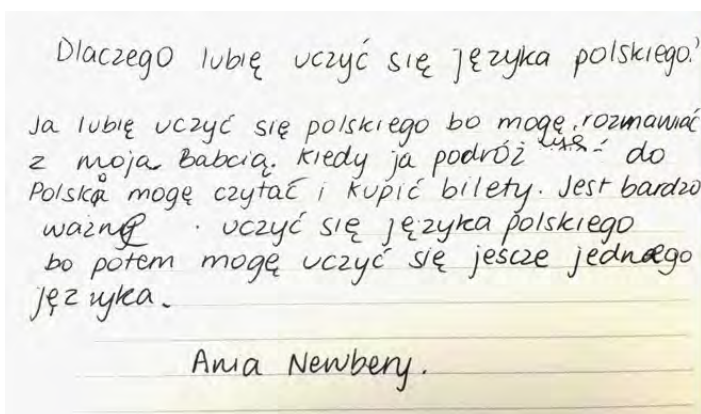 Dlaczego lubię uczyć się języka polskiego?
Ja lubię uczyć się polskiego bo mogę rozmawiać
z moja Babcią. Kiedy ja podróż do
Polska mogę czytać i kupić bilety. Jest bardzo
ważne uczyć się języka polskiego
bo potem mogę uczyć się jescze jednego
języka.
Ania Newbery.